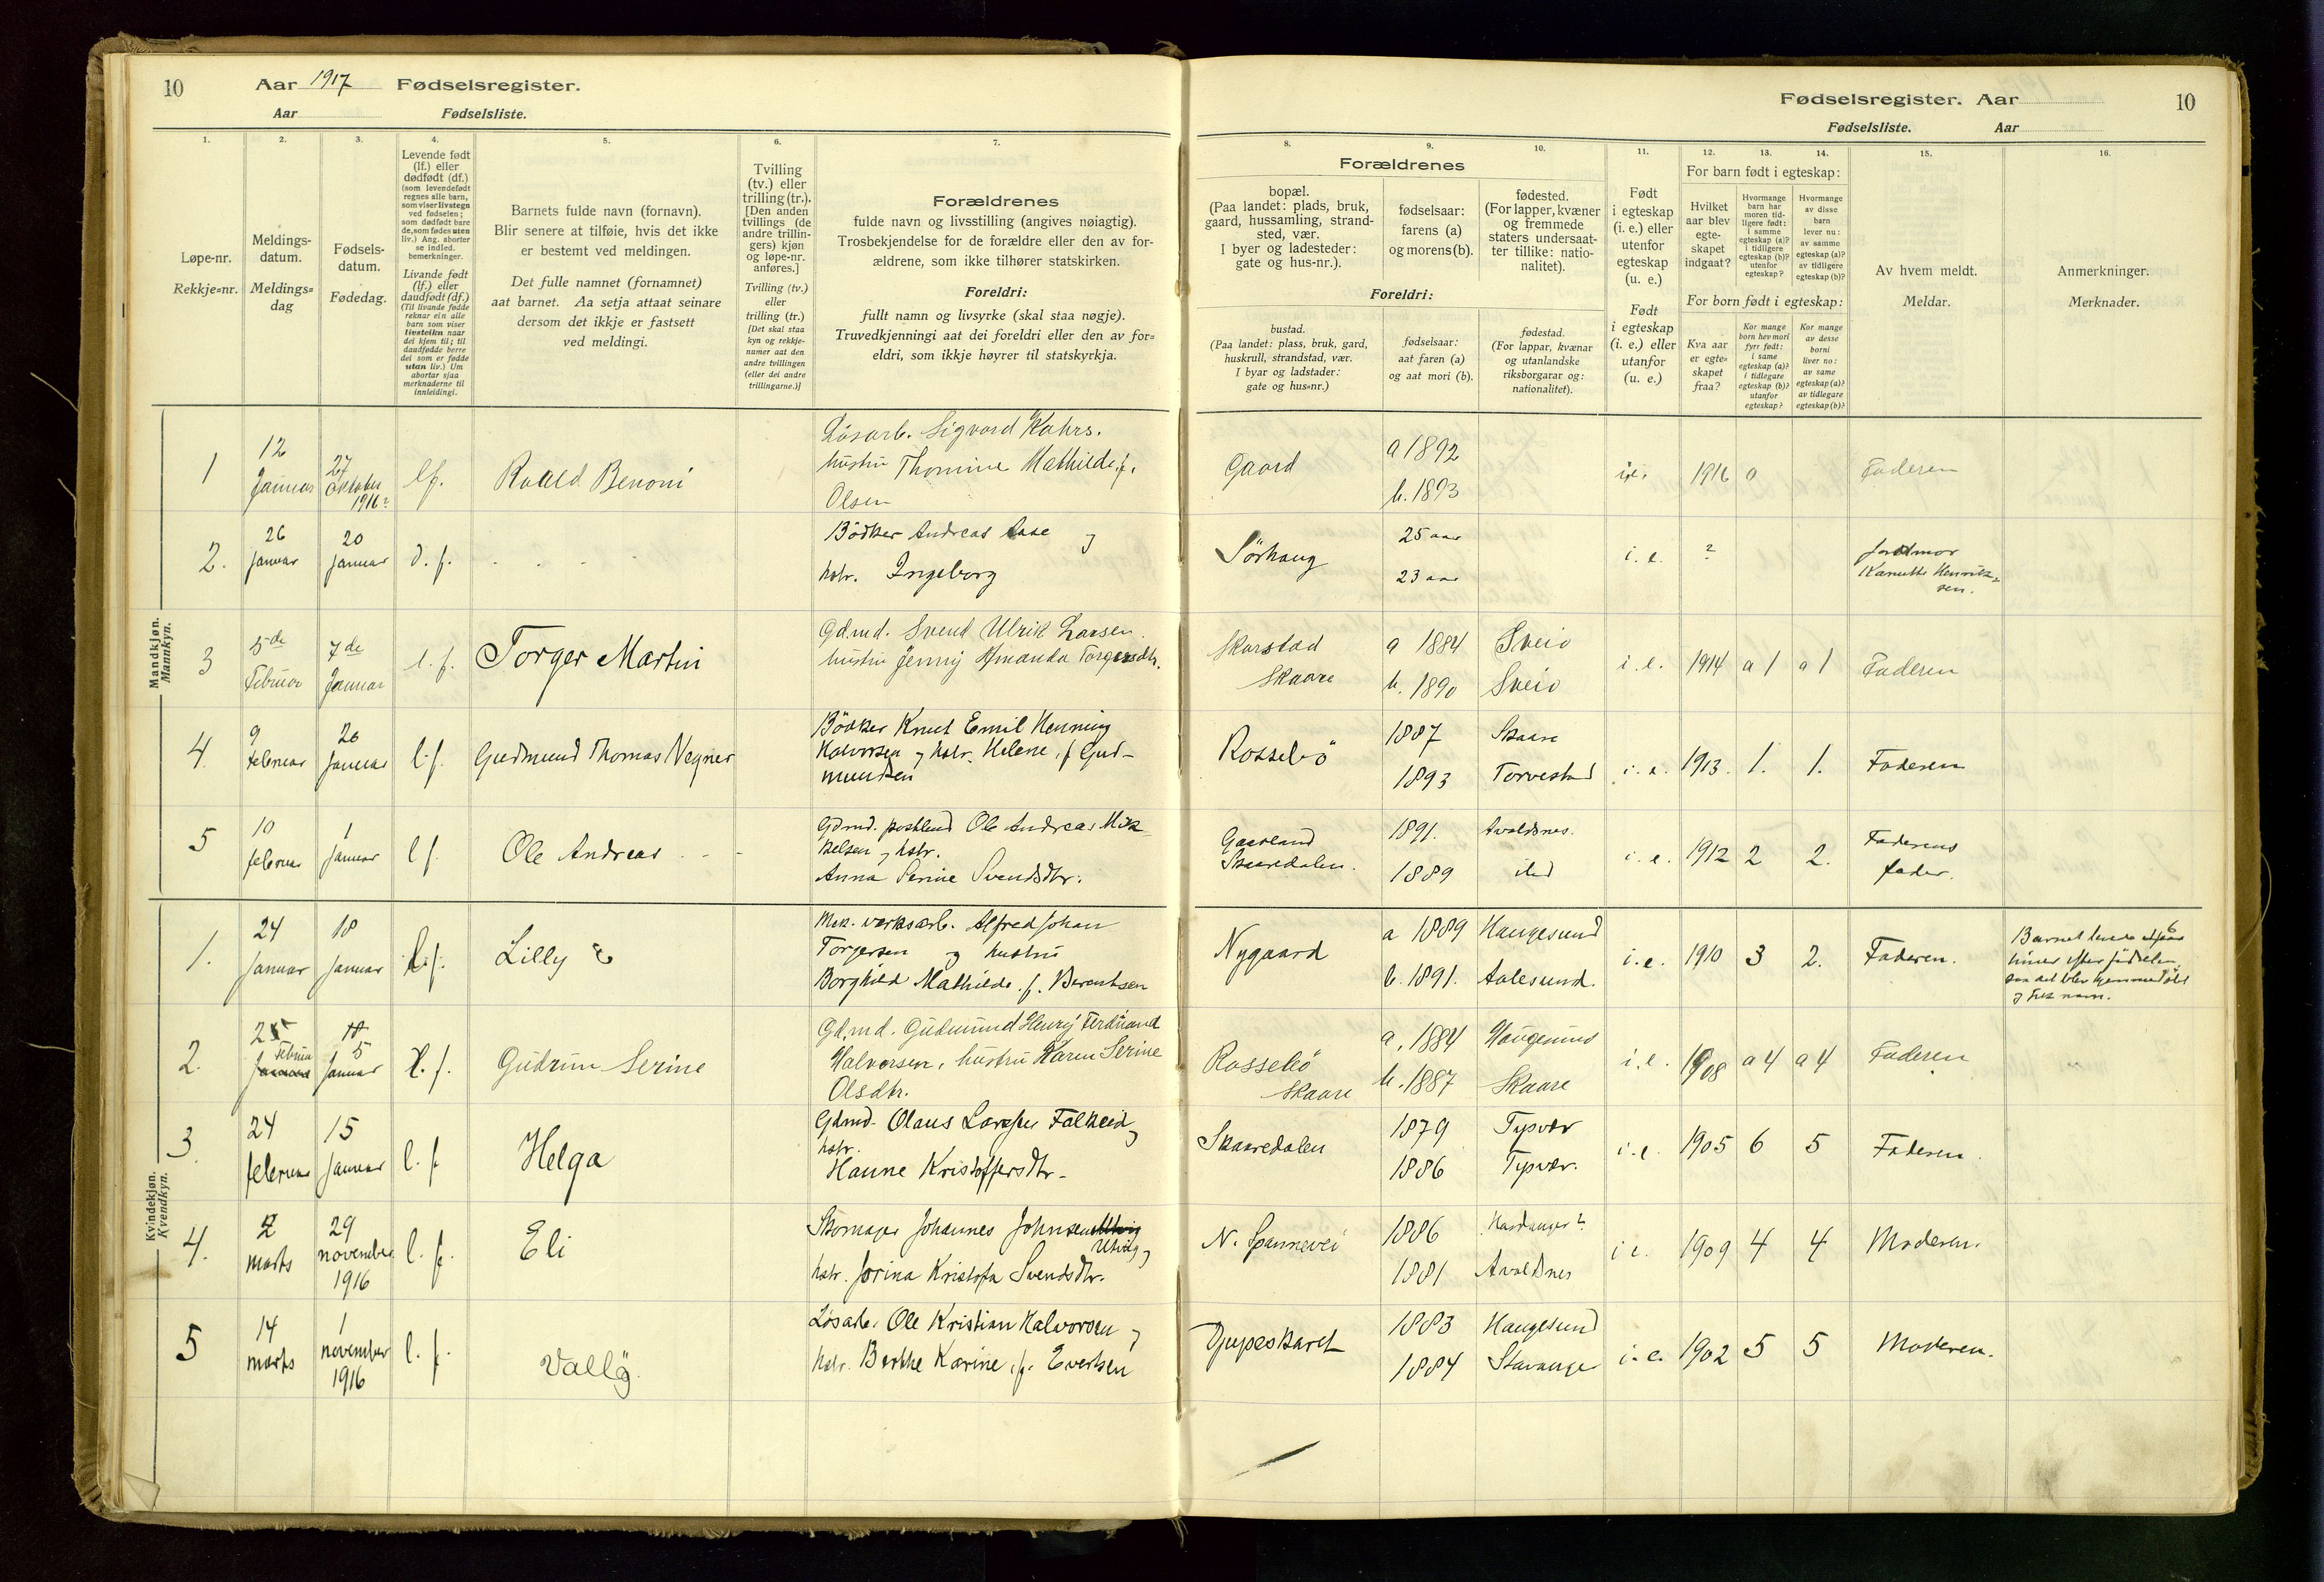 10
Aar 1917 Fødselsregister.
Aar Fødselsliste.
Fødselsregister. Aar
10
Fødselsliste. Aar
1.
Løpe-nr.
Rekkje=nr.
2.
Meldings-
datum.
Meldings=
dag
3.
Fødsels-
datum.
Fødedag.
4.
Levende født
(lf.) eller
dødfødt (df.)
(som levendefødt
regnes alle barn,
som viser livstegn
ved fødselen;
som dødfødt bare
de, som fødes uten
liv.) Ang. aborter
se indled.
bemerkninger.
Livande født
(lf.) eller
daudfødt (df.)
(Til livande fødde
reknar ein alle
barn som viser
livsteikn naar
dei kjem til; til
daudfødde berre
dei som er fødde
utan liv.) Um
abortar sjaa
merknaderne til
innleidingi.
5.
Barnets fulde navn (fornavn).
Blir senere at tilføie, hvis det ikke
er bestemt ved meldingen.
Det fulle namnet (fornamnet)
aat barnet. Aa setja attaat seinare
dersom det ikkje er fastsett
ved meldingi.
6.
Tvilling
(tv.) eller
trilling (tr.).
[Den anden
tvillings (de
andre trillin-
gers) kjøn
og løpe-nr.
anføres.]
Tvilling (tv.)
eller
trilling (tr.)
[Det skal staa
kyn og rekkje-
numer aat den
andre tvillingen
(eller dei andre
trillingarne.)]
7.
Forældrenes
fulde navn og livsstilling (angives nøiagtig).
Trosbekjendelse for de forældre eller den av for-
ældrene, som ikke tilhører statskirken.
Foreldri:
fullt namn og livsyrke (skal staa nøgje).
Truvedkjenningi aat dei foreldri eller den av for=
eldri, som ikkje høyrer til statskyrkja.
8. 9. 10.
Forældrenes
bopæl.
(Paa landet: plads, bruk,
gaard, hussamling, strand-
sted, vær.
I byer og ladesteder:
gate og hus-nr.).
fødselsaar:
farens (a)
og morens (b).
fødested.
(For lapper, kvæner
og fremmede
staters undersaat-
ter tillike: natio-
nalitet).
Foreldri:
bustad.
(Paa landet: plass, bruk, gard,
huskrull, strandstad, vær.
I byar og ladstader:
gate og hus=nr.)
fødselsaar:
aat faren (a)
og aat mori (b).
fødestad.
(For lappar, kvænar
og utanlandske
riksborgarar og:
nationalitet).
11.
Født
i egteskap
(i. e.) eller
utenfor
egteskap
(u. e.)
Født
i egteskap
(i. e.) eller
utanfor
(u. e.)
12. 13. 14.
For barn født i egteskap:
Hvilket
aar blev
egte-
skapet
indgaat?
Hvormange
barn har
moren tid-
ligere født:
i samme
egteskap (a)?
i tidligere
egteskap (b)?
utenfor
egteskap?
Hvormange
av disse
barn
lever nu:
av samme
egteskap (a)?
av tidligere
egteskap (b)?
For born født i egteskap:
Kva aar
er egte=
skapet
fraa?
Kor mange
born hev mori
fyrr født:
i same
egteskap (a)?
i tidlegare
egteskap (b)?
utanfor
egteskap?
Kor mange
av desse
borni
liver no:
av same
egteskap (a)?
av tidlegare
egteskap (b)?
15.
Av hvem meldt.
Meldar.
16.
Anmerkninger.
Merknader.
Mandkjøn.
Mannkyn.
1 12 Januar 27 Oktober 1916? lf. Roald Benoni
Løsarb. Sigvard Kahrs.
hustru Thomine Mathilde f.
Olsen
Gaard a 1892 b. 1893 i.e. 1916 0 Faderen
2. 26 Januar 20 Januar d. f. . . .
Bødker Andreas Aase og
hstr. Ingeborg
Sørhaug 25 aar 23 aar i. e. ? Jordmor
Kanutte Henrik-
sen.
3 5de Februar 7de Januar l. f. Torger Martin
Gdmd. Svend Ulrik Larsen.
hustru Jenny Amanda Torgersdtr.
Skarstad
Skaare
a 1884 Sveio
b. 1890 Sveio
i. e. 1914 a 1 a 1 Faderen
4. 9 februar 20 Januar l. f. Gudmund Thomas Vegner
Bødker Knut Emil Henning
Halvorsen og hstr. Helene, f. Gud-
mundsen
Rossebø 1887 Skaare
1893 Torvestad
i. e. 1913. 1. 1. Faderen
5 10 februar 1 Januar l f. Ole Andreas - -
Gdmd. postbud Ole Andreas Mik-
kelsen og hstr.
Anna Serine Svendsdtr.
Gaasland
Skaaredalen.
1891. Avaldsnes.
1889 itid
i. e. 1912 2 2. Faderens
fader.
Kvindekjøn.
Kvendkyn.
1. 24 Januar 18 Januar l. f. Lilly
Mek. verksarb. Alfred Johan
Torgersen og hustru
Borghild Mathilde f. Berentsen
Nygaard a 1889 Haugesund
b. 1891. Aalesund.
i. e. 1910 3 2. Faderen.
2. 25 Februar Januar 18 5 Januar l. f. Gudrun Serine
Gdmd. Gudmund Henry Ferdinand
Halvorsen, hustru Karen Serine
Olsdtr.
Rossebø
Skaare
a. 1884 Haugesund
b. 1887 Skaare
i. e. 1908 a 4 a 4 Faderen
3. 24 februar 15 Januar l. f. Helga
Gdmd. Olaus Larsen Falkeid og
hstr.
Hanne Kristoffersdtr.
Skaaredalen 1879 Tysvær
1886 Tysvær.
i. e. 1905 6 5 Faderen.
4. 2 marts 29 november 1916 l. f. Eli
Skomager Johannes Johnsen Utvig og
hstr. Jorina Kristofa Svendsdtr.
N. Spannevei 1886 Hardanger?
1881 Avaldsnes
i e. 1909 4 4 Moderen.
5 14 marts 1 november 1916 l. f. Vally.
Løsarb. Ole Kristian Halvorsen og
hstr. Berthe Karine, f. Evertsen
Djupeskaret 1883 Haugesund
1884 Stavanger
i. e. 1902 5 5 Moderen.